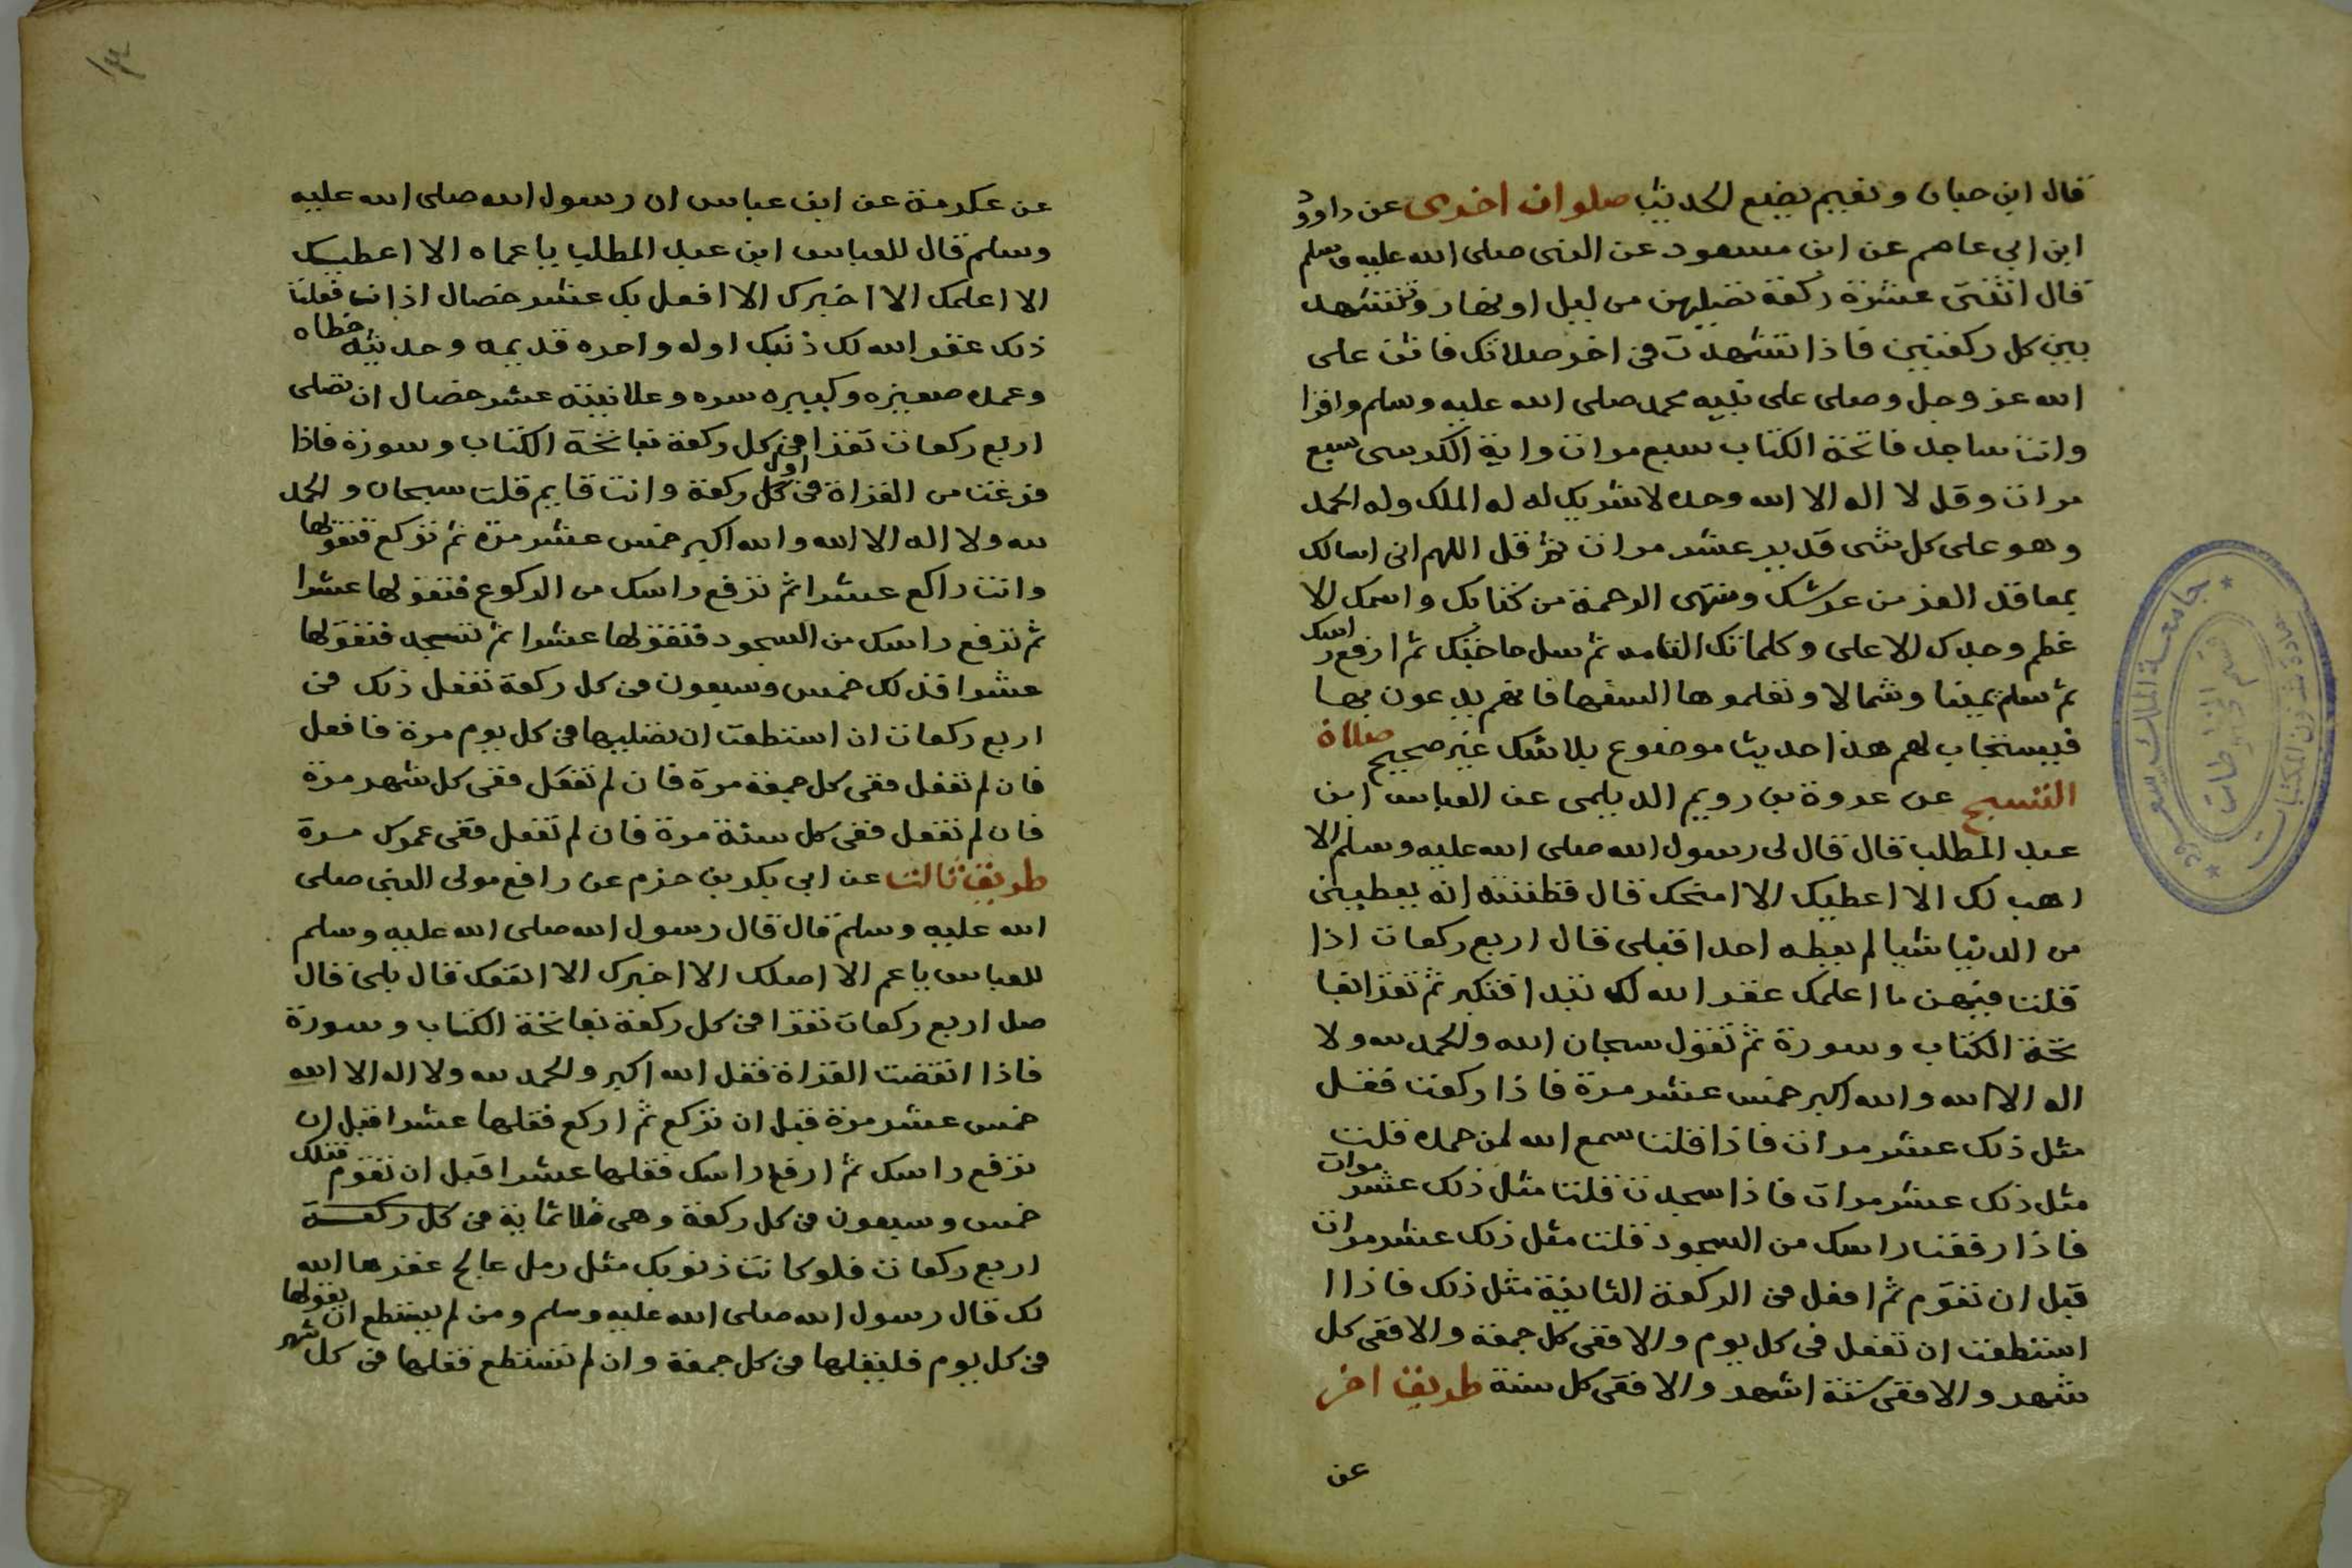 قال ابن حبان ونعيم يضع الحديث صلوات اخرى عن داوود
ابن ابي عاصم عن ابن مسعود عن النبي صلى الله عليه وسلم
قال اثنتى عشرة ركعة تصليهن من ليل او نهار وتتشهد
بين كل ركعتين فاذا تشهدت في اخر صلاتك فاثن على
الله عز وجل وصلى على نبيه محمد صلى الله عليه وسلم واقرا
وانت ساجد فاتحة الكتاب سبع مرات واية الكرسى سبع
مرات وقل لا اله الا الله وحده لا شريك له له الملك وله الحمد
وهو على كل شى قدير عشر مرات ثم قل اللهم انى اسالك
بمعاقد العز من عرشك ومنتهى الرحمة من كتابك واسمك الا
عظم وجدك الاعلى وكلماتك التامه ثم سل حاجتك ثم ارفع راسك
ثم سلم يمينا وشمالا ولا تعلموها السفها فانهم يدعون بها
فيستجاب لهم هذا حديث موضوع بلا شك غير صحيح صلاة
التسبيح عن عروة بن رويم الديلمى عن العباس ابن
عبد المطلب قال قال لى رسول الله صلى الله عليه وسلم الا
اهب لك الا اعطيك الا امنحك قال فظننته انه يعطينى
من الدنيا شيا لم يعطه احدا قبلى قال اربع ركعات اذا
قلت فيهن ما اعلمك غفر الله لك تبدا فتكبر ثم تقرا بفا
تحة الكتاب وسورة ثم تقول سبحان الله والحمد لله ولا
اله الا الله والله اكبر خمس عشر مرة فاذا ركعت فقل
مثل ذلك عشر مرات فاذا قلت سمع الله لمن حمده قلت
مثل ذلك عشر مرات فاذا سجدت قلت مثل ذلك عشر مرات
فاذا رفعت راسك من السجود قلت مثل ذلك عشر مرات
قبل ان تقوم ثم افعل في الركعة الثانية مثل ذلك فاذا ا
استطعت ان تفعل فى كل يوم والا ففى كل جمعة والا ففى كل
شهر والا ففى ستة اشهر والا ففى كل سنة طريق اخر
عن
جامعة الملك سعود
قسم المخطوطات
عن عكرمة عن ابن عباس ان رسول الله صلى الله عليه
وسلم قال للعباس ابن عبد المطلب يا عماه الا اعطيك
الا اعلمك الا اخبرك الا افعل بك عشر خصال اذا انت فعلت
ذلك غفر الله لك ذنبك اوله واخره قديمه وحديثه خطاه
وعمده صغيره وكبيره سره وعلانيته عشر خصال ان تصلى
اربع ركعات تقرا في كل ركعة بفاتحة الكتاب وسورة فاذا
فرغت من القراة في اول كل ركعة وانت قايم قلت سبحان والحمد
لله ولا اله الا الله والله اكبر خمس عشر مرة ثم تركع فتقولها
وانت راكع عشرا ثم ترفع راسك من الركوع فتقولها عشرا
ثم ترفع راسك من السجود فتقولها عشرا ثم تسجد فتقولها
عشرا فذلك خمس وسبعون في كل ركعة تفعل ذلك في
اربع ركعات ان استطعت ان تصليها في كل يوم مرة فافعل
فان لم تفعل ففى كل جمعة مرة فان لم تفعل ففى كل شهر مرة
فان لم تفعل ففى كل سنة مرة فان لم تفعل ففى عمرك مرة
طريق ثالث عن ابي بكر بن حزم عن رافع مولى النبي صلى
الله عليه وسلم قال قال رسول الله صلى الله عليه وسلم
للعباس يا عم الا اصلك الا اخبرك الا انفعك قال بلى قال
صل اربع ركعات تقرا في كل ركعة بفاتحة الكتاب وسورة
فاذا انقضت القراة فقل الله اكبر والحمد لله ولا اله الا الله
خمس عشر مرة قبل ان تركع ثم اركع فقلها عشرا قبل ان
ترفع راسك ثم ارفع راسك فقلها عشرا قبل ان تقوم فتلك
خمس وسبعون في كل ركعة وهى ثلاثماية في كل ركعة
اربع ركعات فلو كانت ذنوبك مثل رمل عالج غفرها الله
لك قال رسول الله صلى الله عليه وسلم ومن لم يستطع ان يقولها
في كل يوم فليقلها في كل جمعة وان لم تستطع فقلها في كل شهر